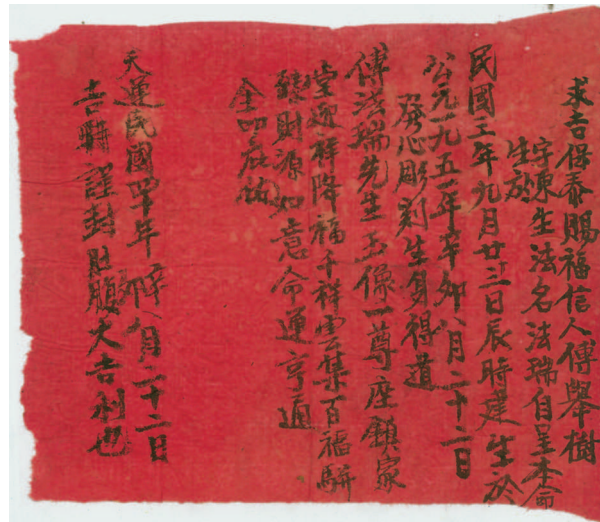 求吉保泰賜福信人傅舉樹
字東生法名法瑞自呈本命
生於
民國三年九月廿三日辰時建生於
公元一九五一年辛卯八月二十二日
發心彫刻生身得道
傅法瑞先生玉像一尊座鎮家
堂迎祥降福千祥雲集百福駢
臻財源如意命運亨通
全叩庇祐
天運民國四十年 八月二十二日
吉時謹封肚臟大吉利也